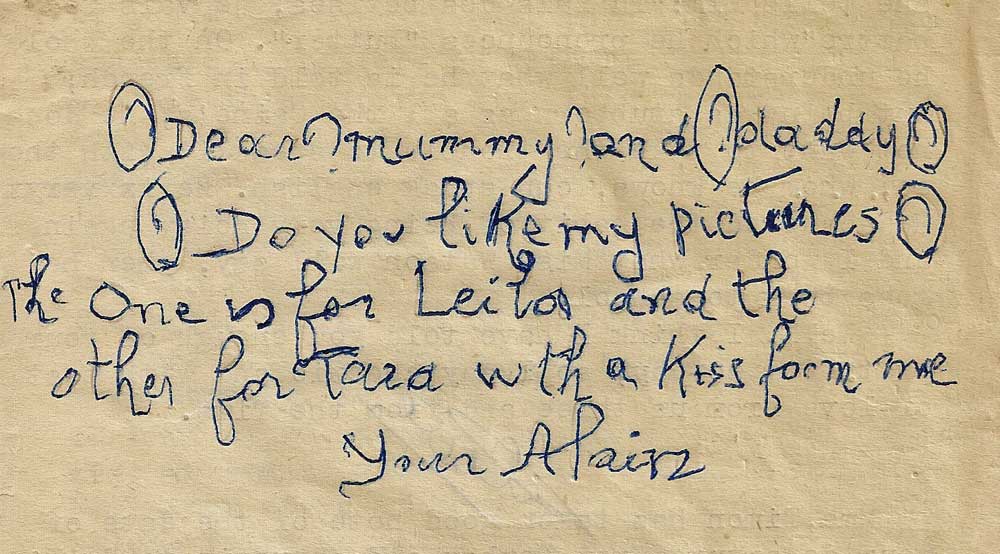 Dear mummy and daddy
Do you like my pictures
The One is for Leila and the
other for Tara with a Kiss form me
Your Alain